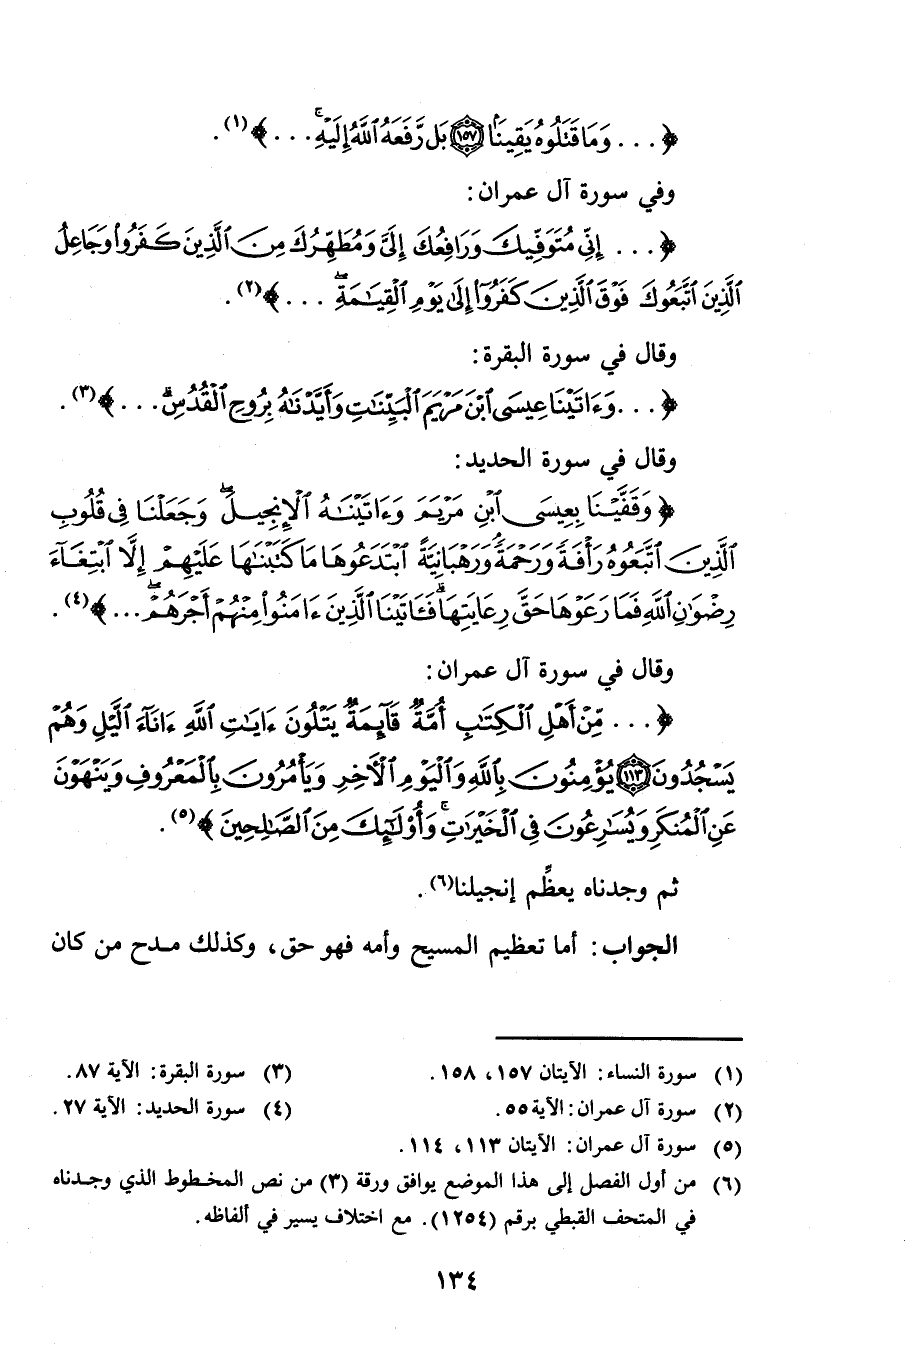 ﴿ . . . وَمَا قَتَلُوهُ يَقِينًۢا ﴿١٥٧﴾ بَل رَّفَعَهُ ٱللَّهُ إِلَيْهِۚ . . . ﴾(١) .
وفي سورة آل عمران :
﴿ . . . إِنِّى مُتَوَفِّيكَ وَرَافِعُكَ إِلَىَّ وَمُطَهِّرُكَ مِنَ ٱلَّذِينَ كَفَرُوا۟ وَجَاعِلُ
ٱلَّذِينَ ٱتَّبَعُوكَ فَوْقَ ٱلَّذِينَ كَفَرُوٓا۟ إِلَىٰ يَوْمِ ٱلْقِيَٰمَةِۖ . . . ﴾(٢) .
وقال في سورة البقرة :
﴿ . . . وَءَاتَيْنَا عِيسَى ٱبْنَ مَرْيَمَ ٱلْبَيِّنَٰتِ وَأَيَّدْنَٰهُ بِرُوحِ ٱلْقُدُسِۗ . . . ﴾(٣) .
وقال في سورة الحديد :
﴿ وَقَفَّيْنَا بِعِيسَى ٱبْنِ مَرْيَمَ وَءَاتَيْنَٰهُ ٱلْإِنجِيلَۖ وَجَعَلْنَا فِى قُلُوبِ
ٱلَّذِينَ ٱتَّبَعُوهُ رَأْفَةً وَرَحْمَةً وَرَهْبَانِيَّةً ٱبْتَدَعُوهَا مَا كَتَبْنَٰهَا عَلَيْهِمْ إِلَّا ٱبْتِغَآءَ
رِضْوَٰنِ ٱللَّهِ فَمَا رَعَوْهَا حَقَّ رِعَايَتِهَاۖ فَـَٔاتَيْنَا ٱلَّذِينَ ءَامَنُوا۟ مِنْهُمْ أَجْرَهُمْۖ . . . ﴾(٤) .
وقال في سورة آل عمران :
﴿ . . . مِّنْ أَهْلِ ٱلْكِتَٰبِ أُمَّةٌ قَآئِمَةٌ يَتْلُونَ ءَايَٰتِ ٱللَّهِ ءَانَآءَ ٱلَّيْلِ وَهُمْ
يَسْجُدُونَ ﴿١١٣﴾ يُؤْمِنُونَ بِٱللَّهِ وَٱلْيَوْمِ ٱلْأَخِرِ وَيَأْمُرُونَ بِٱلْمَعْرُوفِ وَيَنْهَوْنَ
عَنِ ٱلْمُنكَرِ وَيُسَٰرِعُونَ فِى ٱلْخَيْرَٰتِۚ وَأُو۟لَٰٓئِكَ مِنَ ٱلصَّٰلِحِينَ ﴾(٥) .
ثم وجدناه يعظِّم إنجيلنا(٦) .
الجواب : أما تعظيم المسيح وأمه فهو حق، وكذلك مدح من كان
(١) سورة النساء : الآيتان ١٥٧، ١٥٨ . (٣) سورة البقرة : الآية ٨٧ .
(٢) سورة آل عمران : الآية ٥٥ . (٤) سورة الحديد : الآية ٢٧ .
(٥) سورة آل عمران : الآيتان ١١٣، ١١٤ .
(٦) من أول الفصل إلى هذا الموضع يوافق ورقة (٣) من نص المخطوط الذي وجدناه
في المتحف القبطي برقم (١٢٥٤) . مع اختلاف يسير في ألفاظه .
١٣٤